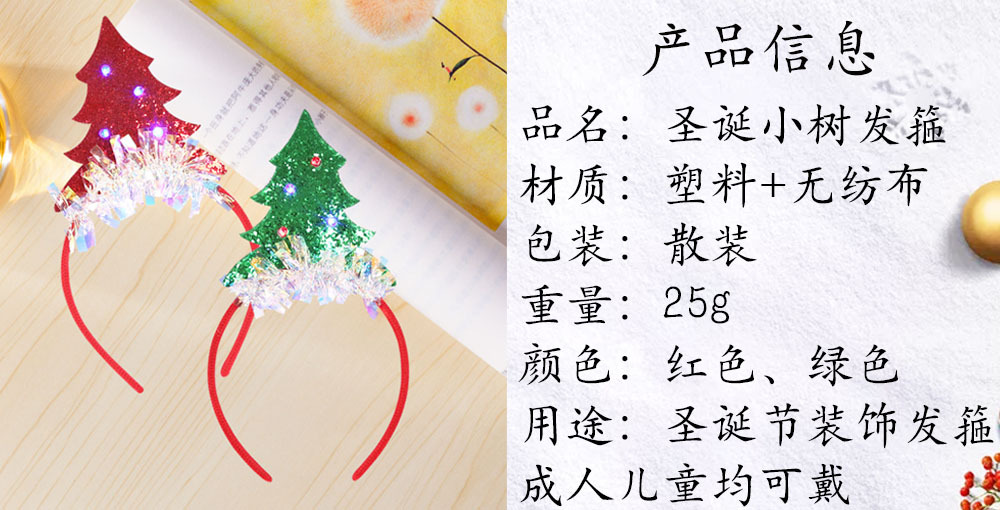 产品信息
品名：圣诞小树发箍
材质：塑料+无纺布
包装：散装
重量：25g
颜色：红色、绿色
用途：圣诞节装饰发箍
成人儿童均可戴